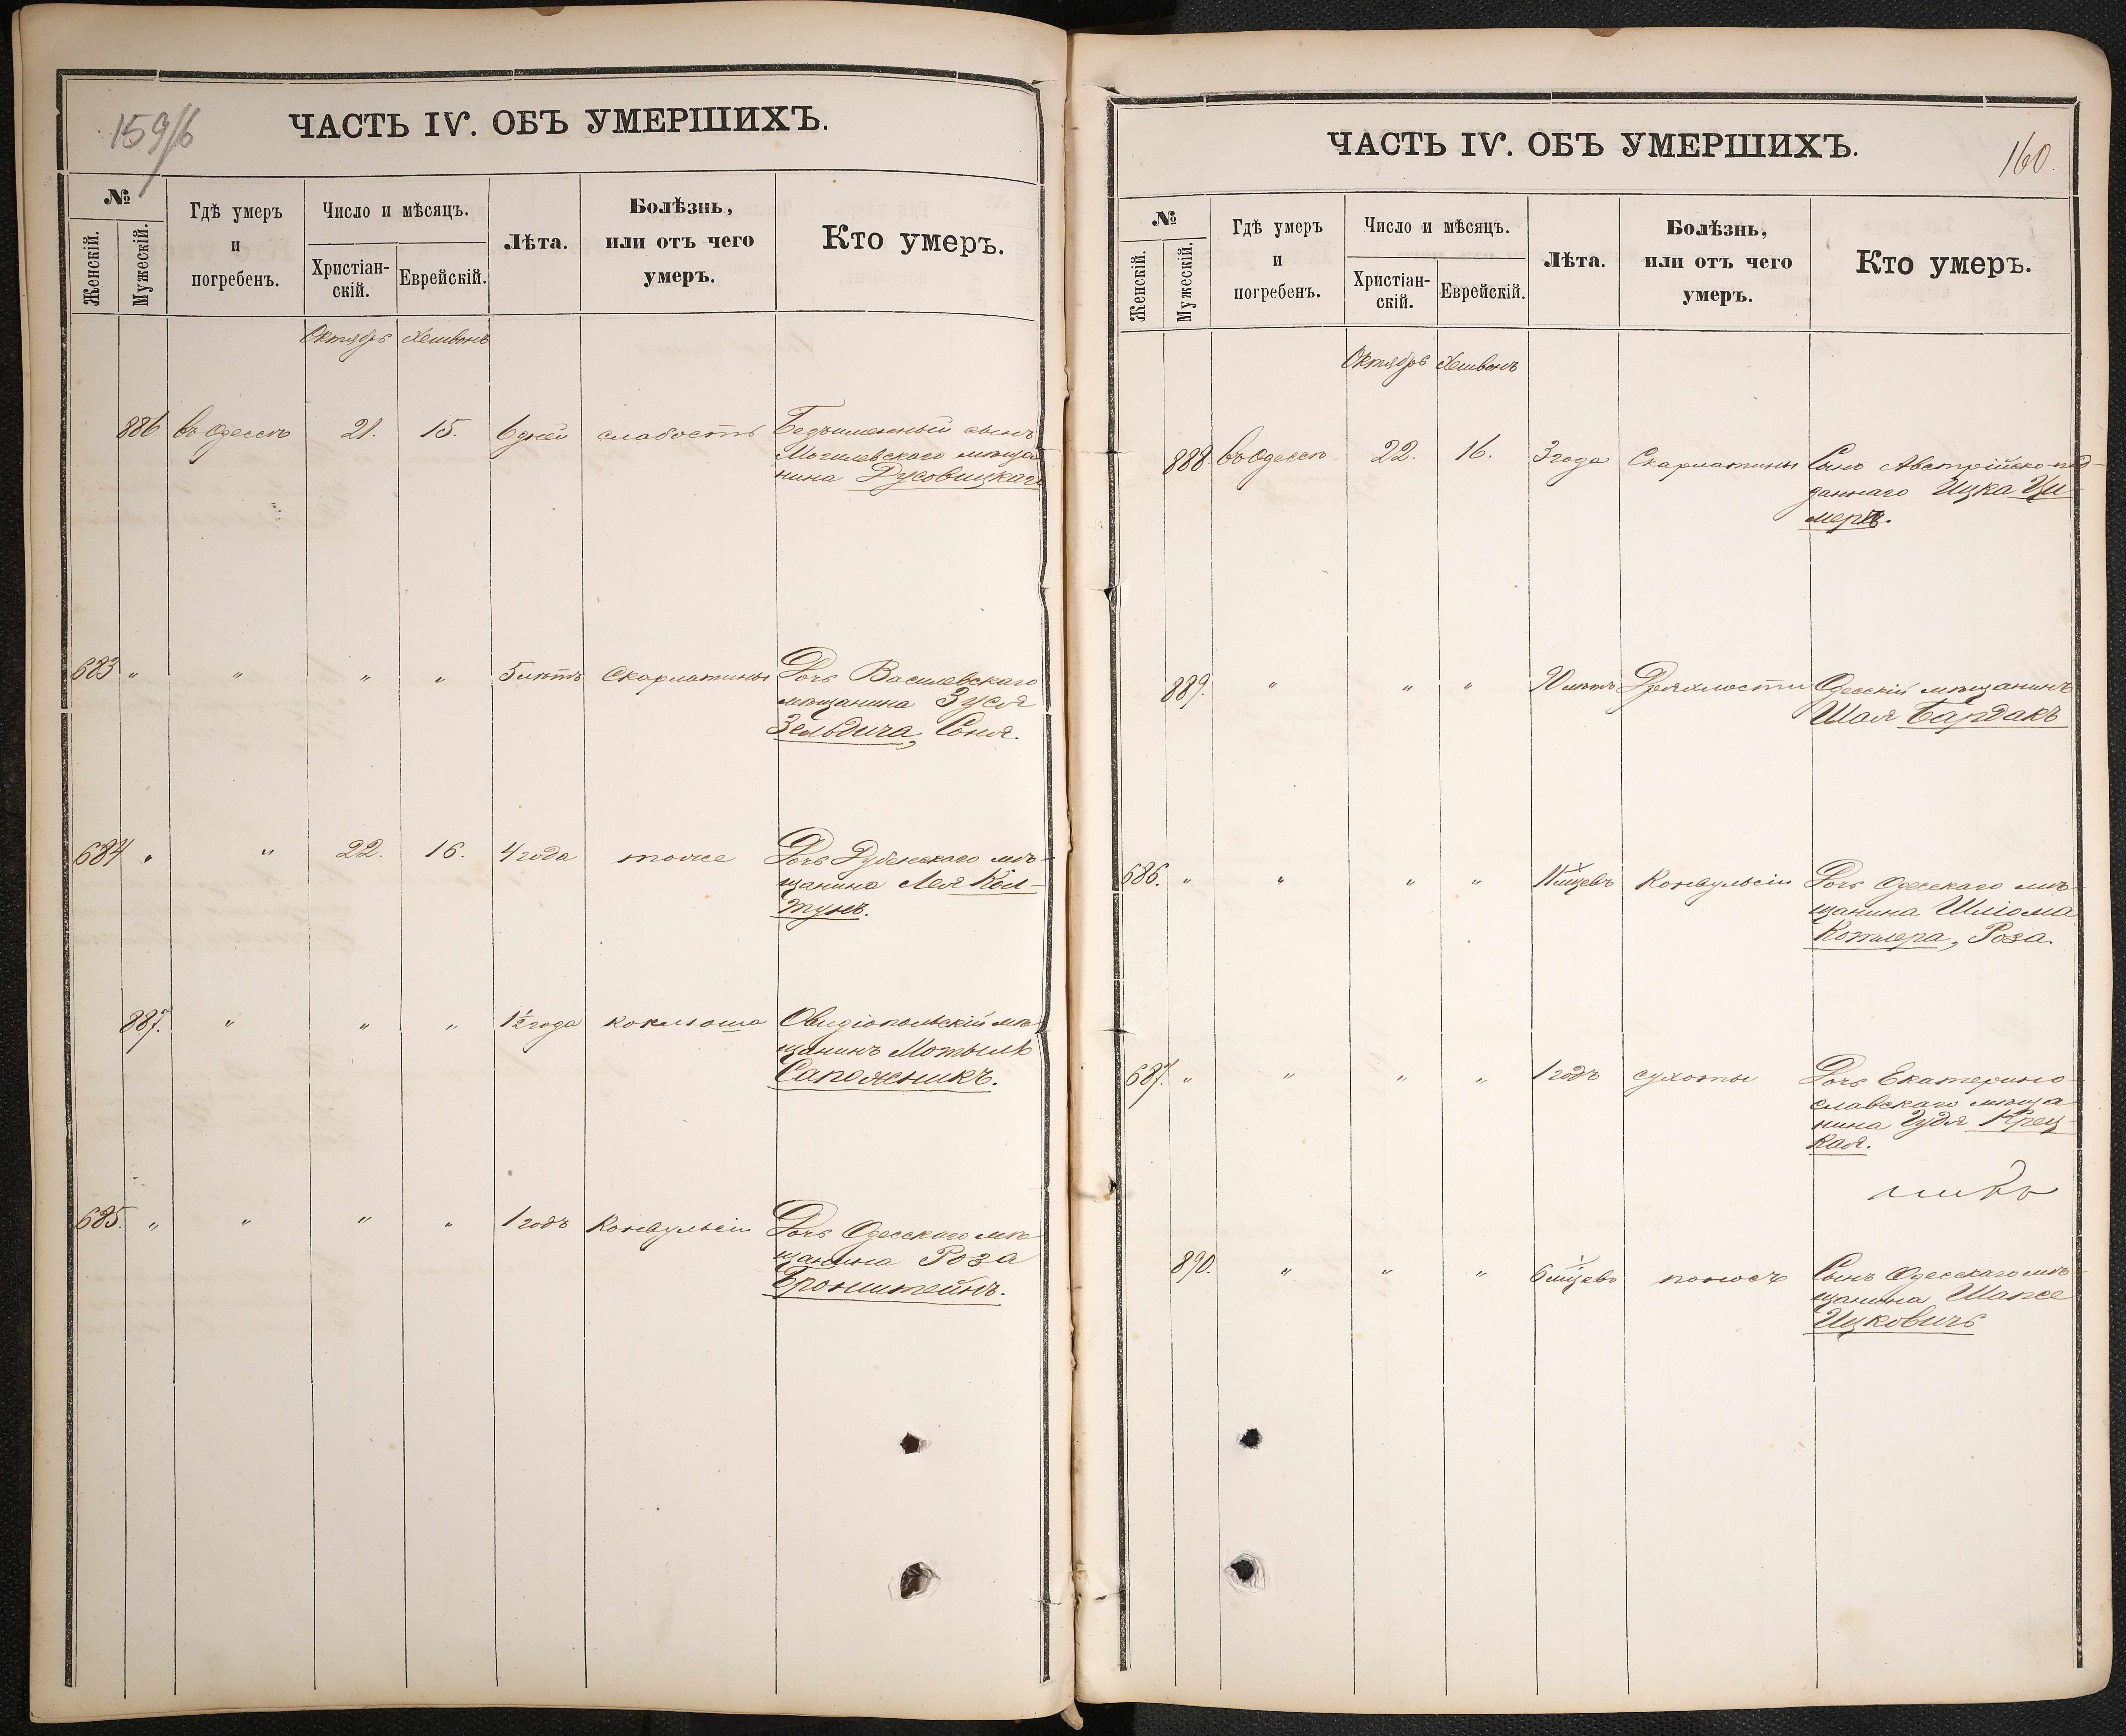 159/б
ЧАСТЬ IV. ОБЪ УМЕРШИХЪ.
№
Женскій.
Мужескій.
Гдѣ умеръ
и
погребенъ.
Число и мѣсяцъ.
Христіан-
скій.
Еврейскій.
Лѣта.
Болѣзнь,
или отъ чего
умеръ.
Кто умеръ.
Октябрь Хешвонъ
886 въ Одессѣ 21. 15. 6 дней слабость Безъименный сынъ
Могилевскаго мѣща
нина Дусовицкаго
683 " " " " 5 лѣтъ Скарлатины Дочь Василевскаго
мѣщанина Зуся
Зельдича, Соня.
684 " " 22. 16. 4 года тоже Дочь Дубенскаго мѣ-
щанина Лея Кол-
тунъ.
887. " " " 1½ года коклюша Овидіопольскій мѣ-
щанинъ Мотыль
Сапожникъ.
685. " " " " 1 годъ Конвульсіи Дочь Одесскаго мѣ-
щанина Роза
Бронштейнъ.
ЧАСТЬ IV. ОБЪ УМЕРШИХЪ.
160.
№
Женскій.
Мужескій.
Гдѣ умеръ
и
погребенъ.
Число и мѣсяцъ.
Христіан-
скій.
Еврейскій.
Лѣта.
Болѣзнь,
или отъ чего
умеръ.
Кто умеръ.
Октябрь Хешвонъ
888 въ Одессѣ 22. 16. 3 года Скарлатины Сынъ Австрійско-под-
даннаго Ицка Ци-
меръ.
889. " " " лѣтъ Дряхлости Одесскій мѣщанинъ
Шая Бардакъ
686. " " " " 11 мѣцевъ Конвульсіи Дочь Одесскаго мѣ-
щанина Шліома
Котлера, Роза.
687. " " " " 1 годъ сухоты Дочь Екатерино-
славскаго мѣща
нина Гудя Крец-
кая.
890. " " " 6 мѣцевъ поносъ Сынъ Одесскаго мѣ-
щанина Шапсе
Ицковичъ